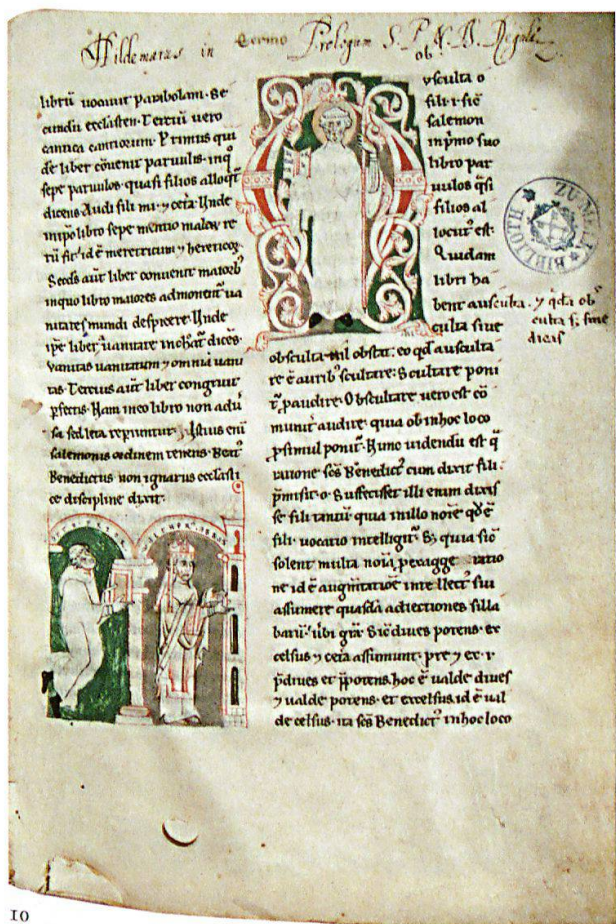 Hildemarus in Prologum S. P. N. B. Regulę
ob
librū uocauit parabolam. Se
cundū ecclasten. Tertiū uero
cantica canticorum. Primus qui
de liber cōuenit paruulis. inq̄
sepe paruulos. quasi filios alloqt̄
dicens. Audi fili mi. ⁊ cetā. Unde
inipō libro sepe mentio malarū re
rū fit. id ē meretricum ⁊ hereticoꝝ.
Scds aūt liber conuenit maiorib᷒
inquo libro maiores admonent᷒ ua
nitates mundi despicere. Unde
ipē liber uanitate inchoat᷒ dicēs.
Vanitas uanitatum ⁊ omnia uani
tas. Tercius aūt liber congruit
ꝑfectis. Nam ineo libro non
sed leta repiuntur. Istius eni᷒
salemonis ordinem tenens. Beat᷒
Benedictus non ignarus ecclasti
ce discipline dixit.
vsculta o
fili. i. sic̄
salemon
inp̄mo suo
libro par
uulos q̄si
filios al
locut᷒ est.
Quidam
libri ha
bent ausculta.
⁊ qđā ob᷒
culta s; sine
dicis
culta siue
obsculta nil obstat. eo qđ ausculta
re ē aurib᷒ scultare. Scultare poni
t᷒ ꝓ audire. Obscultare uero est cō
munit᷒ audire. quia ob inhoc loco
ꝓ simul ponit᷒. Nunc uidendū est q̄
ratione scs̄ Benedict᷒ cum dixit fili.
p̄misit. o. Suffecisset illi enim dixis
se fili tantū quia inillo noīe qđ ē
fili. uocatio intelligit᷒. S; quia sic̄
solent multa noīa ꝑ exagge ratio
ne id ē augm̄tationē intellect᷒ sui
assumere quasdā adiectiones silla
barū. ubi grā. Sic̄ diues potens. ex
celsus ⁊ cetā assumunt. pre ⁊ ex. ⁊
p̄diues et p̄potens. hoc ē ualde diues
⁊ ualde potens. et excelsus. id ē ual
de celsus. ita scs̄ Benedict᷒ inhoc loco
BIBLIOTH ZU MELK
10